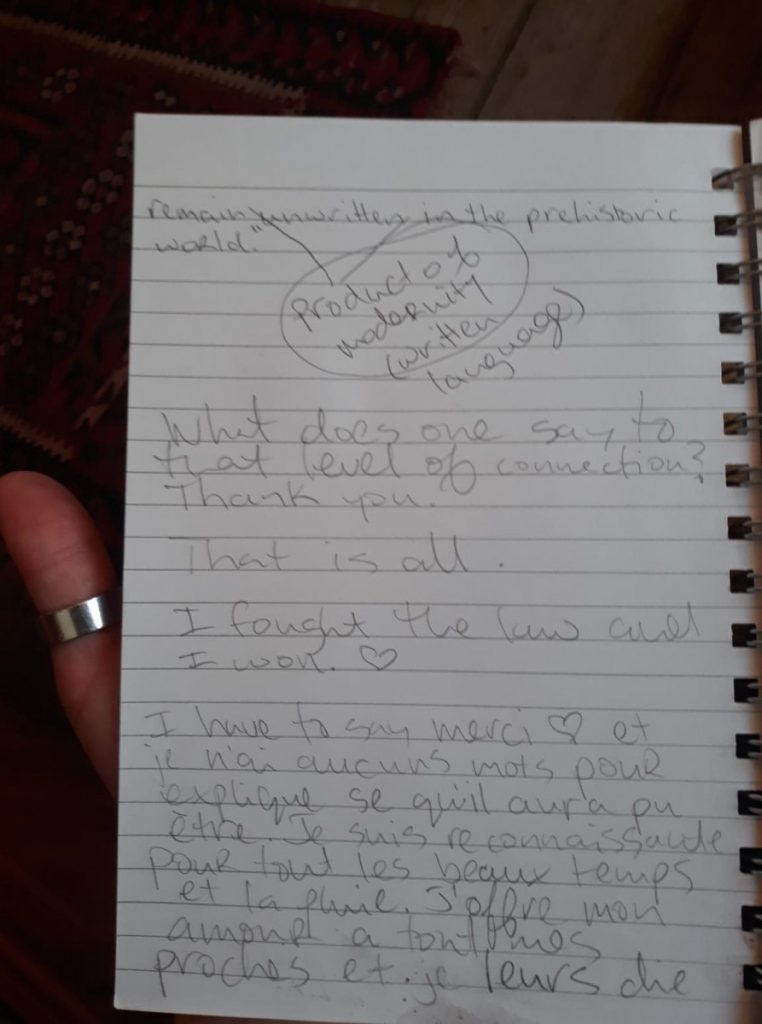 remain unwritten in the prehistoric
world."
product of
modernity
(written
language)
What does one say to
that level of connection?
Thank you.
That is all.
I fought the law and
I won. ♡
I have to say merci ♡ et
je n'ai aucuns mots pour
explique se qu'il aura pu
être. Je suis reconnaissante
pour tout les beaux temps
et la pluie. J'offre mon
amour a tout mes
proches et je leurs die